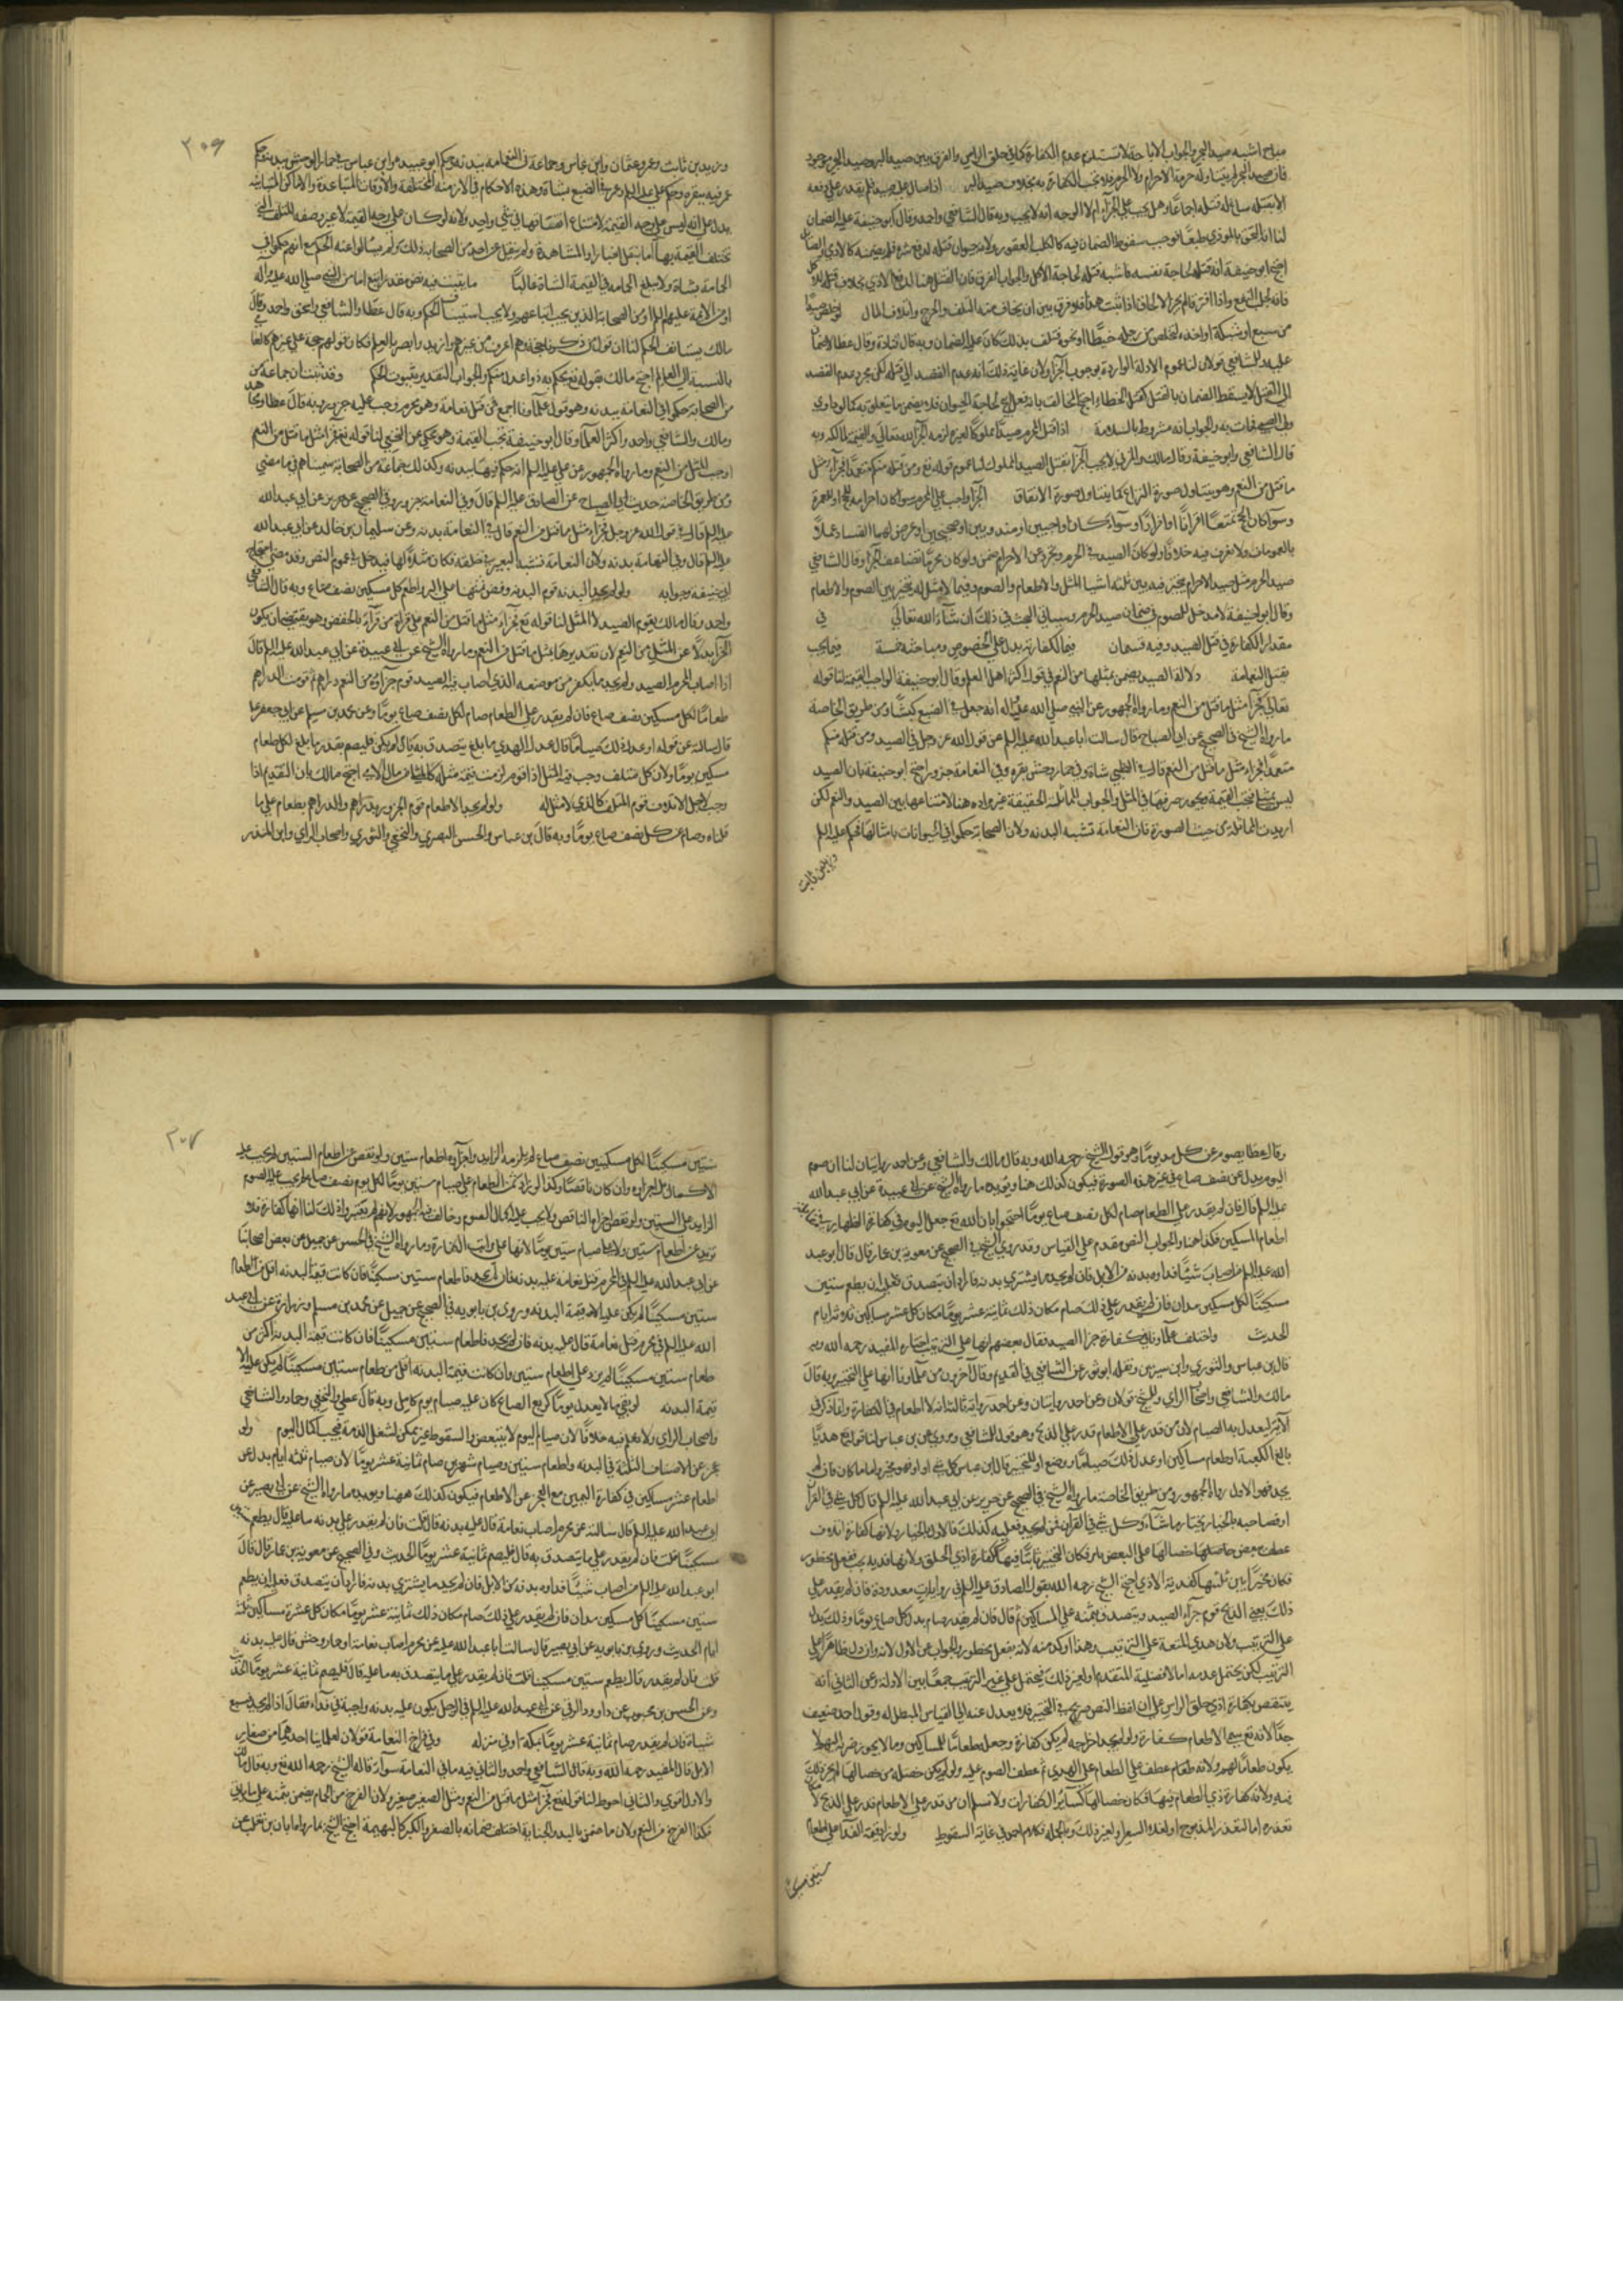 مباح اشبه صيد البحر والجواب الاباحة لا تستلزم عدم الكفارة كما في حلق الراس والفرق بين صيد البر وصيد البحر موجود
فان صيد البحر لم يتناوله حرمة الاحرام ولا الحرم فلا تجب الكفارة به بخلاف صيد البر اذا صال عليه صيد فلم يقدر على دفعه
الا بقتله ساغ له قتله اجماعا وهل يجب عليه الجزاء ام لا الوجه انه لا يجب وبه قال الشافعي واحمد وقال ابو حنيفة عليه الضمان
لنا انه التحق بالموذي طبعا فوجب سقوط الضمان فيه كالكلب العقور ولانه حيوان قتله لدفع شره فلم يضمنه كالادمي الصائل
احتج ابو حنيفة انه قتله لحاجة نفسه فاشبه قتله لحاجة الاكل والجواب الفرق فان القتل هنا لدفع الاذى بخلاف قتله للاكل
من سبع او شبكة او اخذه ليخلص من رجله خيطا او نحوه فتلف بذلك كان عليه الضمان وبه قال قتادة وقال عطا لا ضمان
عليه وللشافعي قولان لنا عموم الادلة الواردة بوجوب الجزاء ولان غاية ذلك انه عدم القصد الى قتله لكن مجرد عدم القصد
الى القتل لا يسقط الضمان بالقتل كقتل الخطاء احتج المخالف بانه فعل ابيح لحاجة الحيوان فلا يضمن ما يتعلق به كما لو داوى
ولي الصبي فمات به والجواب انه مشروط بالسلامة اذا قتل المحرم صيدا مملوكا لغيره لزمه الجزاء لله تعالى والقيمة لمالكه وبه
قال الشافعي وابو حنيفة وقال مالك والمزني لا يجب الجزاء بقتل الصيد المملوك لنا عموم قوله تع ومن قتله منكم متعمدا فجزاء مثل
ما قتل من النعم وهو يتناول صورة النزاع كما يتناول صورة الاتفاق الجزاء واجب على المحرم سواء كان احرامه للحج او للعمرة
وسواء كان الحج تمتعا او قرانا او افرادا وسواء كان واجبين او مندوبين او صحيحين او عرض لهما الفساد عملا
بالعمومات ولا نعرف فيه خلافا ولو كان الصيد في الحرم وتجرد عن الاحرام ضمن ولو كان محرما تضاعف الجزاء وقال الشافعي
صيد الحرم مثل صيد الاحرام يتخير فيه بين ثلثة اشيا المثل والاطعام والصوم وفيما لا مثل له يتخير بين الصوم والاطعام
وقال ابو حنيفة لا مدخل للصوم في ضمان صيد الحرم وسياتي البحث في ذلك ان شاء الله تعالى في
مقدار الكفارة في قتل الصيد وفيه قسمان فيما لكفارته بدل على الخصوص ومباحثه خمسة فيما يجب
بقتل النعامة ودلالة الصيد يضمن بمثلها من النعم في قول اكثر اهل العلم وقال ابو حنيفة الواجب القيمة لنا قوله
تعالى فجزاء مثل ما قتل من النعم وما رواه الجمهور عن النبي صلى الله عليه واله انه جعل في الضبع كبشا ومن طريق الخاصة
ما رواه الشيخ في الصحيح عن ابي الصباح قال سالت ابا عبد الله عليه السلم عن قول الله عز وجل في الصيد ومن قتله منكم
متعمدا فجزاء مثل ما قتل من النعم قال في الظبي شاة وفي حمار وحش بقرة وفي النعامة جزور احتج ابو حنيفة بان الصيد
ليس بمثلي فتجب القيمة ويجوز صرفها في المثل والجواب المماثلة الحقيقة غير مراده هنا لامتناعها بين الصيد والنعم لكن
اريدت المماثلة من حيث الصورة فان النعامة تشبه البدنه ولان الصحابة حكموا في الحيوانات بامثالها فحكم علي عليه السلم
وزيد بن ثابت
٣٠٦
وزيد بن ثابت وعمر وعثمان وابن عباس وجماعة في النعامة ببدنه وحكم ابو عبيدة وابن عباس في حمار الوحش ببدنه وحكم
عمر فيه ببقره وحكم علي عليه السلم وعمر في الضبع بشاة وهذه الاحكام في الازمنه المختلفة والاوقات المتباعدة والاماكن المتباينة
يدل على انه ليس على وجه القيمة لامتناع اتفاقها في شي واحد ولانه لو كان على وجه القيمة لاعتبر وصفه المتلف التي
تختلف القيمة بها اما بنقل اخبار او المشاهدة ولم ينقل عن احد من الصحابة ذلك ولم يسالوا عنه الحكم مع انهم حكموا في
الحمامة بشاة ولا تبلغ الحمامة في القيمة الشاة غالبا ما يثبت فيه نص مقدر اتبع اما من النبي صلى الله عليه واله
او من الائمة عليهم السلم او من الصحابة الذين يجب اتباعهم ولا يجب استيناف الحكم وبه قال عطا والشافعي واسحق واحمد وقال
مالك يستانف الحكم لنا ان قول من ذكرنا حجة وهم اعرف من غيرهم وازيد وابصر بالعلم فكان قولهم حجة على غيرهم كالعامي
بالنسبة الى العالم احتج مالك بقوله تع يحكم به ذوا عدل منكم والجواب التقدير ثبوت الحكم وقد ثبت ان جماعة من
من الصحابة حكموا في النعامة ببدنه وهو قول علماونا اجمع فمن قتل نعامة وهو محرم وجب عليه جزور وبه قال عطا ومجاهد
ومالك والشافعي واحمد واكثر العلماء وقال ابو حنيفة تجب القيمة وهو محكي عن النخعي لنا قوله تع فجزاء مثل ما قتل من النعم
اوجب المثل من النعم وما رواه الجمهور عن علي عليه السلم انه حكم فيها ببدنه وكذلك جماعة من الصحابة سميناهم فيما مضى
ومن طريق الخاصة حديث ابي الصباح عن الصادق عليه السلم قال وفي النعامة جزور وفي الصحيح عن حريز عن ابي عبد الله
عليه السلم قال في قول الله عز وجل فجزاء مثل ما قتل من النعم قال في النعامة بدنه وعن سليمان بن خالد عن ابي عبد الله
عليه السلم قال وفي النعامة بدنه ولان النعامة تشبه البعير في خلقته فكان مثلا لها فيدخل في عموم النص وقد مضى احتجاج
ابي حنيفة وجوابه ولو لم يجد البدنه قوم البدنه وفض ثمنها على البر واطعم كل مسكين نصف صاع وبه قال الشافعي
واحمد وقال مالك يقوم الصيد لا المثل لنا قوله تع فجزاء مثل ما قتل من النعم على قراءة من قراه بالخفض وهو يقتضي ان يكون
الجزاء بدلا عن المثل من النعم لان تقديرهما بمثل ما قتل من النعم وما رواه الشيخ عن ابي عبيدة عن ابي عبد الله عليه السلم قال
اذا اصاب المحرم الصيد ولم يجد ما يكفر من موضعه الذي اصاب فيه الصيد قوم جزاؤه من النعم دراهم ثم قومت الدراهم
طعاما لكل مسكين نصف صاع فان لم يقدر على الطعام صام لكل نصف صاع يوما وعن محمد بن مسلم عن ابي جعفر عليه
قال سالته عن قوله او عدل ذلك صياما قال عدل الهدي ما بلغ يتصدق به قال لو لم يكن فليصم بقدر ما بلغ لكل طعام
مسكين يوما ولان كل متلف وجب فيه المثل اذا قوم لزمت قيمة مثله كالمثلي من مال الادمي احتج مالك بان التقويم اذا
وجب لاجل الاتلاف قوم المتلف كالذي لا مثل له ولو لم يجد الاطعام قوم الجزور بدراهم والدراهم بطعام على ما
قلناه وصام عن كل نصف صاع يوما وبه قال بن عباس والحسن البصري والنخعي والثوري واصحاب الراي وابن المنذر
وقال عطا يصوم عن كل مد يوما وهو قول الشيخ رحمه الله وبه قال مالك والشافعي وعن احمد روايتان لنا ان صوم
اليوم بدل عن نصف صاع في غير هذه الصورة فيكون كذلك هنا ويؤيده ما رواه الشيخ عن ابي عبيدة عن ابي عبد الله
عليه السلم قال فان لم يقدر على الطعام صام لكل نصف صاع يوما احتجوا بان الله تع جعل اليوم في كفارة الظهار في مقابلة
اطعام المسكين فكذا هنا والجواب النص مقدم على القياس وقد روى الشيخ في الصحيح عن معوية بن عمار قال قال ابو عبد
الله عليه السلم من اصاب شيئا فداوه بدنه من الابل فان لم يجد ما يشتري بدنه فاراد ان يتصدق فعليه ان يطعم ستين
مسكينا لكل مسكين مدان فان لم يقدر على ذلك صام مكان ذلك ثمانية عشر يوما مكان كل عشر مساكين ثلاثة ايام
الحديث واختلف علماونا في كفارة جزاء الصيد فقال بعضهم انها على الترتيب اختاره المفيد رحمه الله وبه
قال بن عباس والثوري وابن سيرين ونقله ابو ثور عن الشافعي في القديم وقال اخرون من علماونا انها على التخيير وبه قال
مالك والشافعي واصحاب الراي وللشيخ قولان وعن احمد روايتان وعن احمد رواية ثالثة انه لا اطعام في الكفارة وانما ذكر في
الآية ليعدل به الصيام لان من قدر على الاطعام قدر على الذبح وهو قول للشافعي ومروي عن بن عباس لنا قوله تع هديا
بالغ الكعبة او طعام مساكين او عدل ذلك صياما ووضع او للتخيير قال بن عباس كل شي او او فهو مخير واما ما كان فان لم
يجد فهو الاول رواه الجمهور ومن طريق الخاصة ما رواه الشيخ في الصحيح عن حريز عن ابي عبد الله عليه السلم قال كل شي في القران
او فصاحبه بالخيار يختار ما شاء وكل شي في القران فمن لم يجد فعليه كذلك فالاول بالخيار ولانها كفارة اتلاف
فكان مخيرا بين ثلثها كفدية الاذى احتج الشيخ رحمه الله بقول الصادق عليه السلم في روايات معدودة فان لم يقدر على
ذلك يعني الذبح قوم جزاء الصيد وتصدق بثمنه على المساكين ثم قال فان لم يقدر صام بدل كل صاع يوما وذلك يدل
على الترتيب ولان هدي المتعة على الترتيب وهذا اوكد منه لانه بفعل محظور والجواب عن الاول لانه وان دل ظاهرا على
الترتيب لكن يحتمل عدمه اما لافضلية المتقدم او لغير ذلك فيحمل على غير الترتيب جمعا بين الادلة وعن الثاني انه
ينتقض بكفارة اذى حلق الراس على ان لفظ النص صريح في التخيير فلا يعدل عنه الى القياس المبطل له وقول احمد ضعيف
جدا لانه تع سمى الاطعام كفارة ولو لم يجب اخراجه لم يكن كفارة وجعله طعاما للمساكين وما لا يجوز صرفه اليهم لا
يكون طعاما لهم ولانه طعام عطف على الطعام على الهدي ثم عطف الصوم عليه ولو لم يكن خصلة من خصالها لم يجز ذلك
فيه ولانه كفارة ذي الطعام فيها فكان خصالها كسائر الكفارات ولا نسلم ان من قدر على الاطعام قدر على الذبح لان
تعذره اما لتعذر المذبوح او لغلاء السعر او لغير ذلك وبالجملة فكلام احمد في غاية السقوط ولو زاد قيمة الفداء على اطعام
ستين مسكينا
٣٠٧
ستين مسكينا لكل مسكين نصف صاع لم يلزمه الزايد واجزاه اطعام ستين ولو نقص عن اطعام الستين لم يجب عليه
الاكمال بل اجزاه وان كان ناقصا وكذا لو زاد ثمن الطعام على صيام ستين يوما لكل يوم نصف صاع لم يجب عليه الصوم
الزايد على الستين ولو نقص اجزاه الناقص ولا يجب عليه اكمال الصوم وخالف فيه الجمهور لانهم لم يعتبروا ذلك لنا انها كفارة فلا
تزيد عن اطعام ستين ولا على صيام ستين يوما لانها على مراتب الكفارة وما رواه الشيخ في الحسن عن جميل عن بعض اصحابنا
عن ابي عبد الله عليه السلم في المحرم قتل نعامة عليه بدنه فان لم يجد فاطعام ستين مسكينا فان كانت قيمة البدنه اقل من اطعام
ستين مسكينا لم يكن عليه الا قيمة البدنه وروى بن بابويه في الصحيح عن جميل عن محمد بن مسلم وزرارة عن ابي عبد
الله عليه السلم في محرم قتل نعامة قال عليه بدنه فان لم يجد فاطعام ستين مسكينا فان كانت قيمة البدنة اكثر من
طعام ستين مسكينا لم يزد على اطعام ستين وان كانت قيمة البدنه اقل من طعام ستين مسكينا لم يكن عليه الا
قيمة البدنه لو بقي ما لا يعدل يوما كربع الصاع كان عليه صيام يوم كامل وبه قال عطا والنخعي وحماد والشافعي
واصحاب الراي ولا نعلم فيه خلافا لان صيام اليوم لا يتبعض والسقوط غير ممكن لشغل الذمة فيجب اكمال اليوم ولو
عجز عن الاصناف الثلثة في البدنه واطعام ستين وصيام شهرين صام ثمانية عشر يوما لان صيام ثلثة ايام بدل عن
اطعام عشر مساكين في كفارة اليمين مع العجز عن الاطعام فيكون كذلك ههنا ويؤيده ما رواه الشيخ عن ابي بصير عن
ابي عبد الله عليه السلم قال سالته عن محرم اصاب نعامة قال عليه بدنه قال قلت فان لم يقدر على بدنه ما عليه قال يطعم ستين
مسكينا قلت فان لم يقدر على ما يتصدق به قال فليصم ثمانية عشر يوما الحديث وفي الصحيح عن معوية بن عمار قال قال
ابو عبد الله عليه السلم من اصاب شيئا فداوه بدنه من الابل فان لم يجد ما يشتري بدنه فاراد ان يتصدق فعليه ان يطعم
ستين مسكينا كل مسكين مدان فان لم يقدر على ذلك صام مكان ذلك ثمانية عشر يوما مكان كل عشرة مساكين ثلثة
ايام الحديث وروى بن بابويه عن ابي بصير قال سالت ابا عبد الله عليه عن محرم اصاب نعامة او حمار وحش قال عليه بدنه
قلت فان لم يقدر قال يطعم ستين مسكينا قلت فان لم يقدر على ما يتصدق به ما عليه قال فليصم ثمانية عشر يوما الحديث
وعن الحسن بن محبوب عن داوود الرقي عن ابي عبد الله عليه السلم في الرجل يكون عليه بدنه واجبة في فداء فقال اذا لم يجد فسبع
شياه فان لم يقدر صام ثمانية عشر يوما بمكة او في منزله وفي فراخ النعامة قولان لعلماينا احدهما من صغار
الابل قال المفيد رحمه الله وبه قال الشافعي واحمد والثاني فيه ما في النعامة سواء قاله الشيخ رحمه الله تع وبه قال مالك
والاول اقوى والثاني احوط لنا قوله تع فجزاء مثل ما قتل من النعم ومثل الصغير صغير ولان الفرخ من الحمام يضمن بمثله
فكذا الفرخ من النعم ولان ما ضمن باليد والجناية اختلف ضمانه بالصغر والكبر كالبهيمة احتج الشيخ بما رواه ابان بن تغلب عن